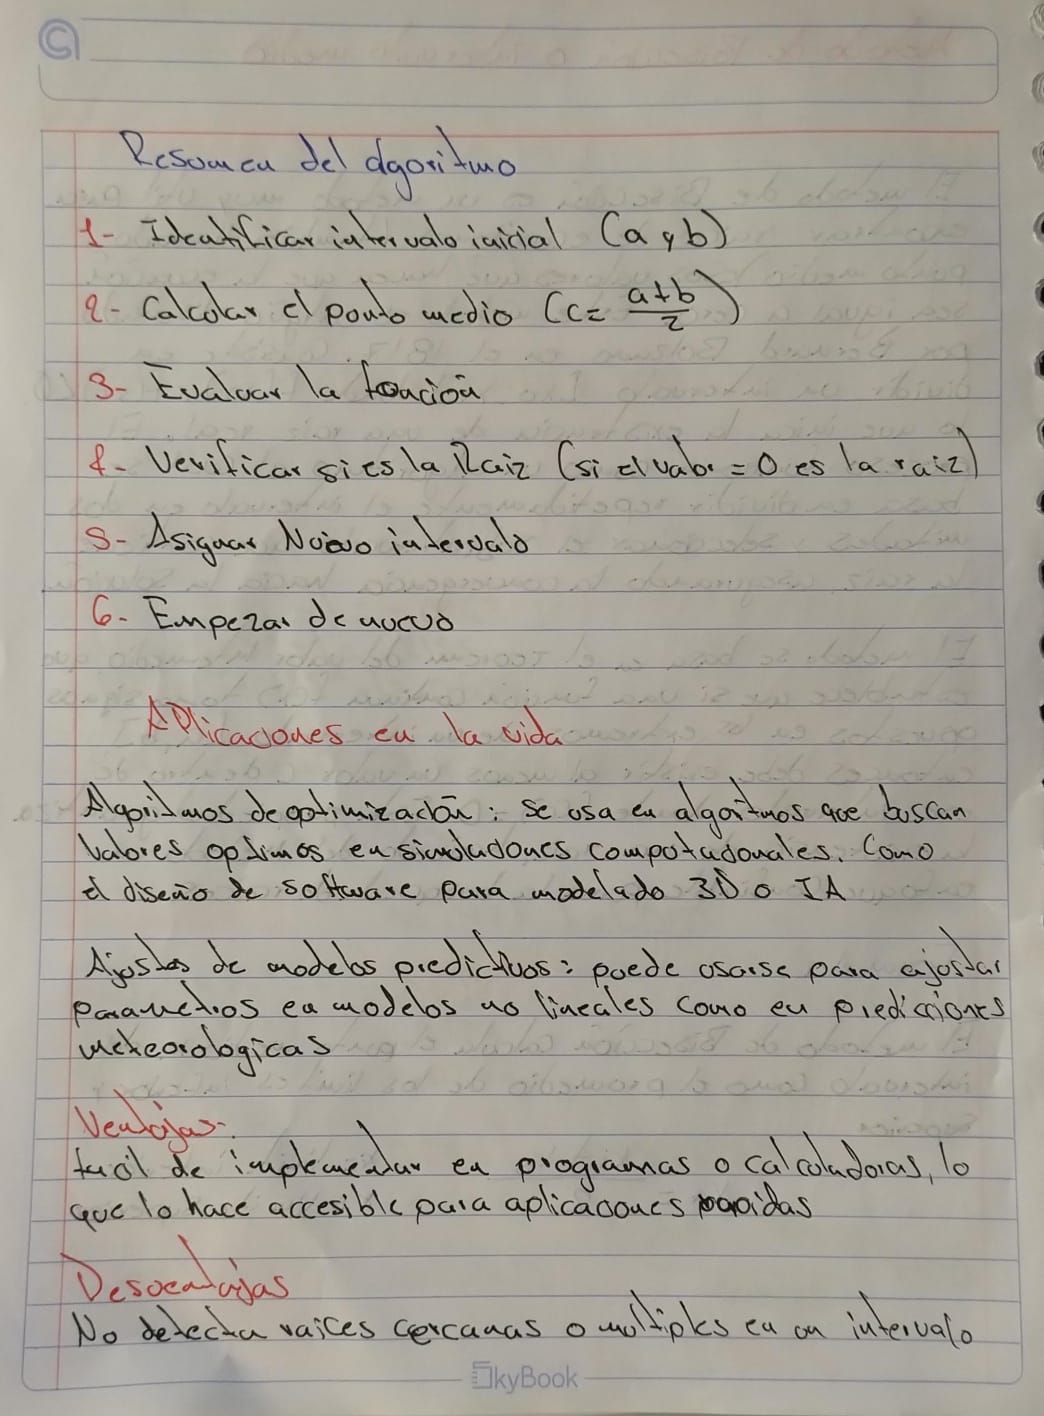 Resumen del algoritmo
1- Identificar intervalo inicial (a y b)
2- Calcular el punto medio (c= a+b/2)
3- Evaluar la función
4- Verificar si es la Raiz (si el valor = 0 es la raiz)
5- Asignar Nuevo intervalo
6- Empezar de nuevo
Aplicaciones en la vida
Algoritmos de optimización: se usa en algoritmos que buscan
Valores optimos en simulaciones computacionales. Como
el diseño de software para modelado 3D o IA
Ajustes de modelos predictivos: puede usarse para ajustar
Parametros en modelos no lineales como en predicciones
meteorologicas
Ventajas
facil de implementar en programas o calculadoras, lo
que lo hace accesible para aplicaciones rapidas
Desventajas
No detecta raices cercanas o multiples en un intervalo
SkyBook